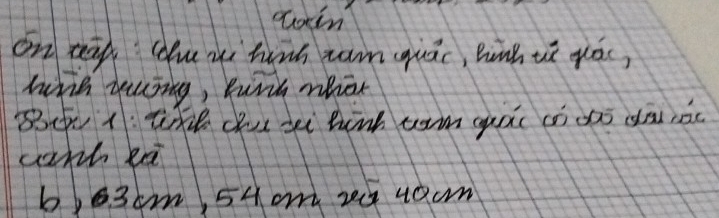 Toán
Ôn tập: Chu vi hình tam giác, hình tứ giác,
hình vuông, hình nhật
Bài 1: Tính chu vi hình tam giác có độ dài các
cạnh là
b, 63cm, 54cm và 40cm